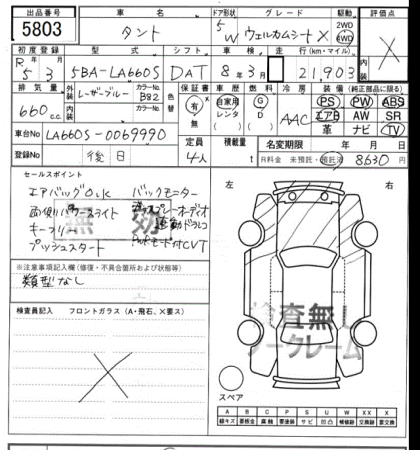 出品番号 車名 ドア形状 グレード 駆動 評価点
5803 タント 5 W ウェルカムシート X 2WD 4WD X
初度登録 型式 シフト 車検 走行 (km・マイル)
R5 3 5BA-LA660S DAT 8年3月 21,903
排気量 外装 レーザーブルー カラーNo. B82 色替 保証書 車歴 燃料 冷房 装備 (純正部品に限る)
660 c.c. 内装 カラーNo. 有 無 自家用 レンタ G D AAC PS PW ABS
エアB AW SR
革 ナビ TV
車台No LA660S-0069990 定員 4人 積載量 t 名変期限 年 月 日
書類 後日 R料金 未預託・預託済 8630 円
セールスポイント
エアバッグO.K バックモニター
両側パワースライド ディスプレーオーディオ
キーフリー 電動ドラレコ
プッシュスタート PWRモード付CVT
無効
※注意事項記入欄 (修復・不具合箇所および状態等)
類型なし
検査員記入 フロントガラス (A・飛石、X要ス)
左 右
検査無し
ノークレーム
スペア
A B C P S U W X XX
線キズ 要板金 腐蝕 要塗装 サビ 凹凸 補修跡 交換跡 要交換